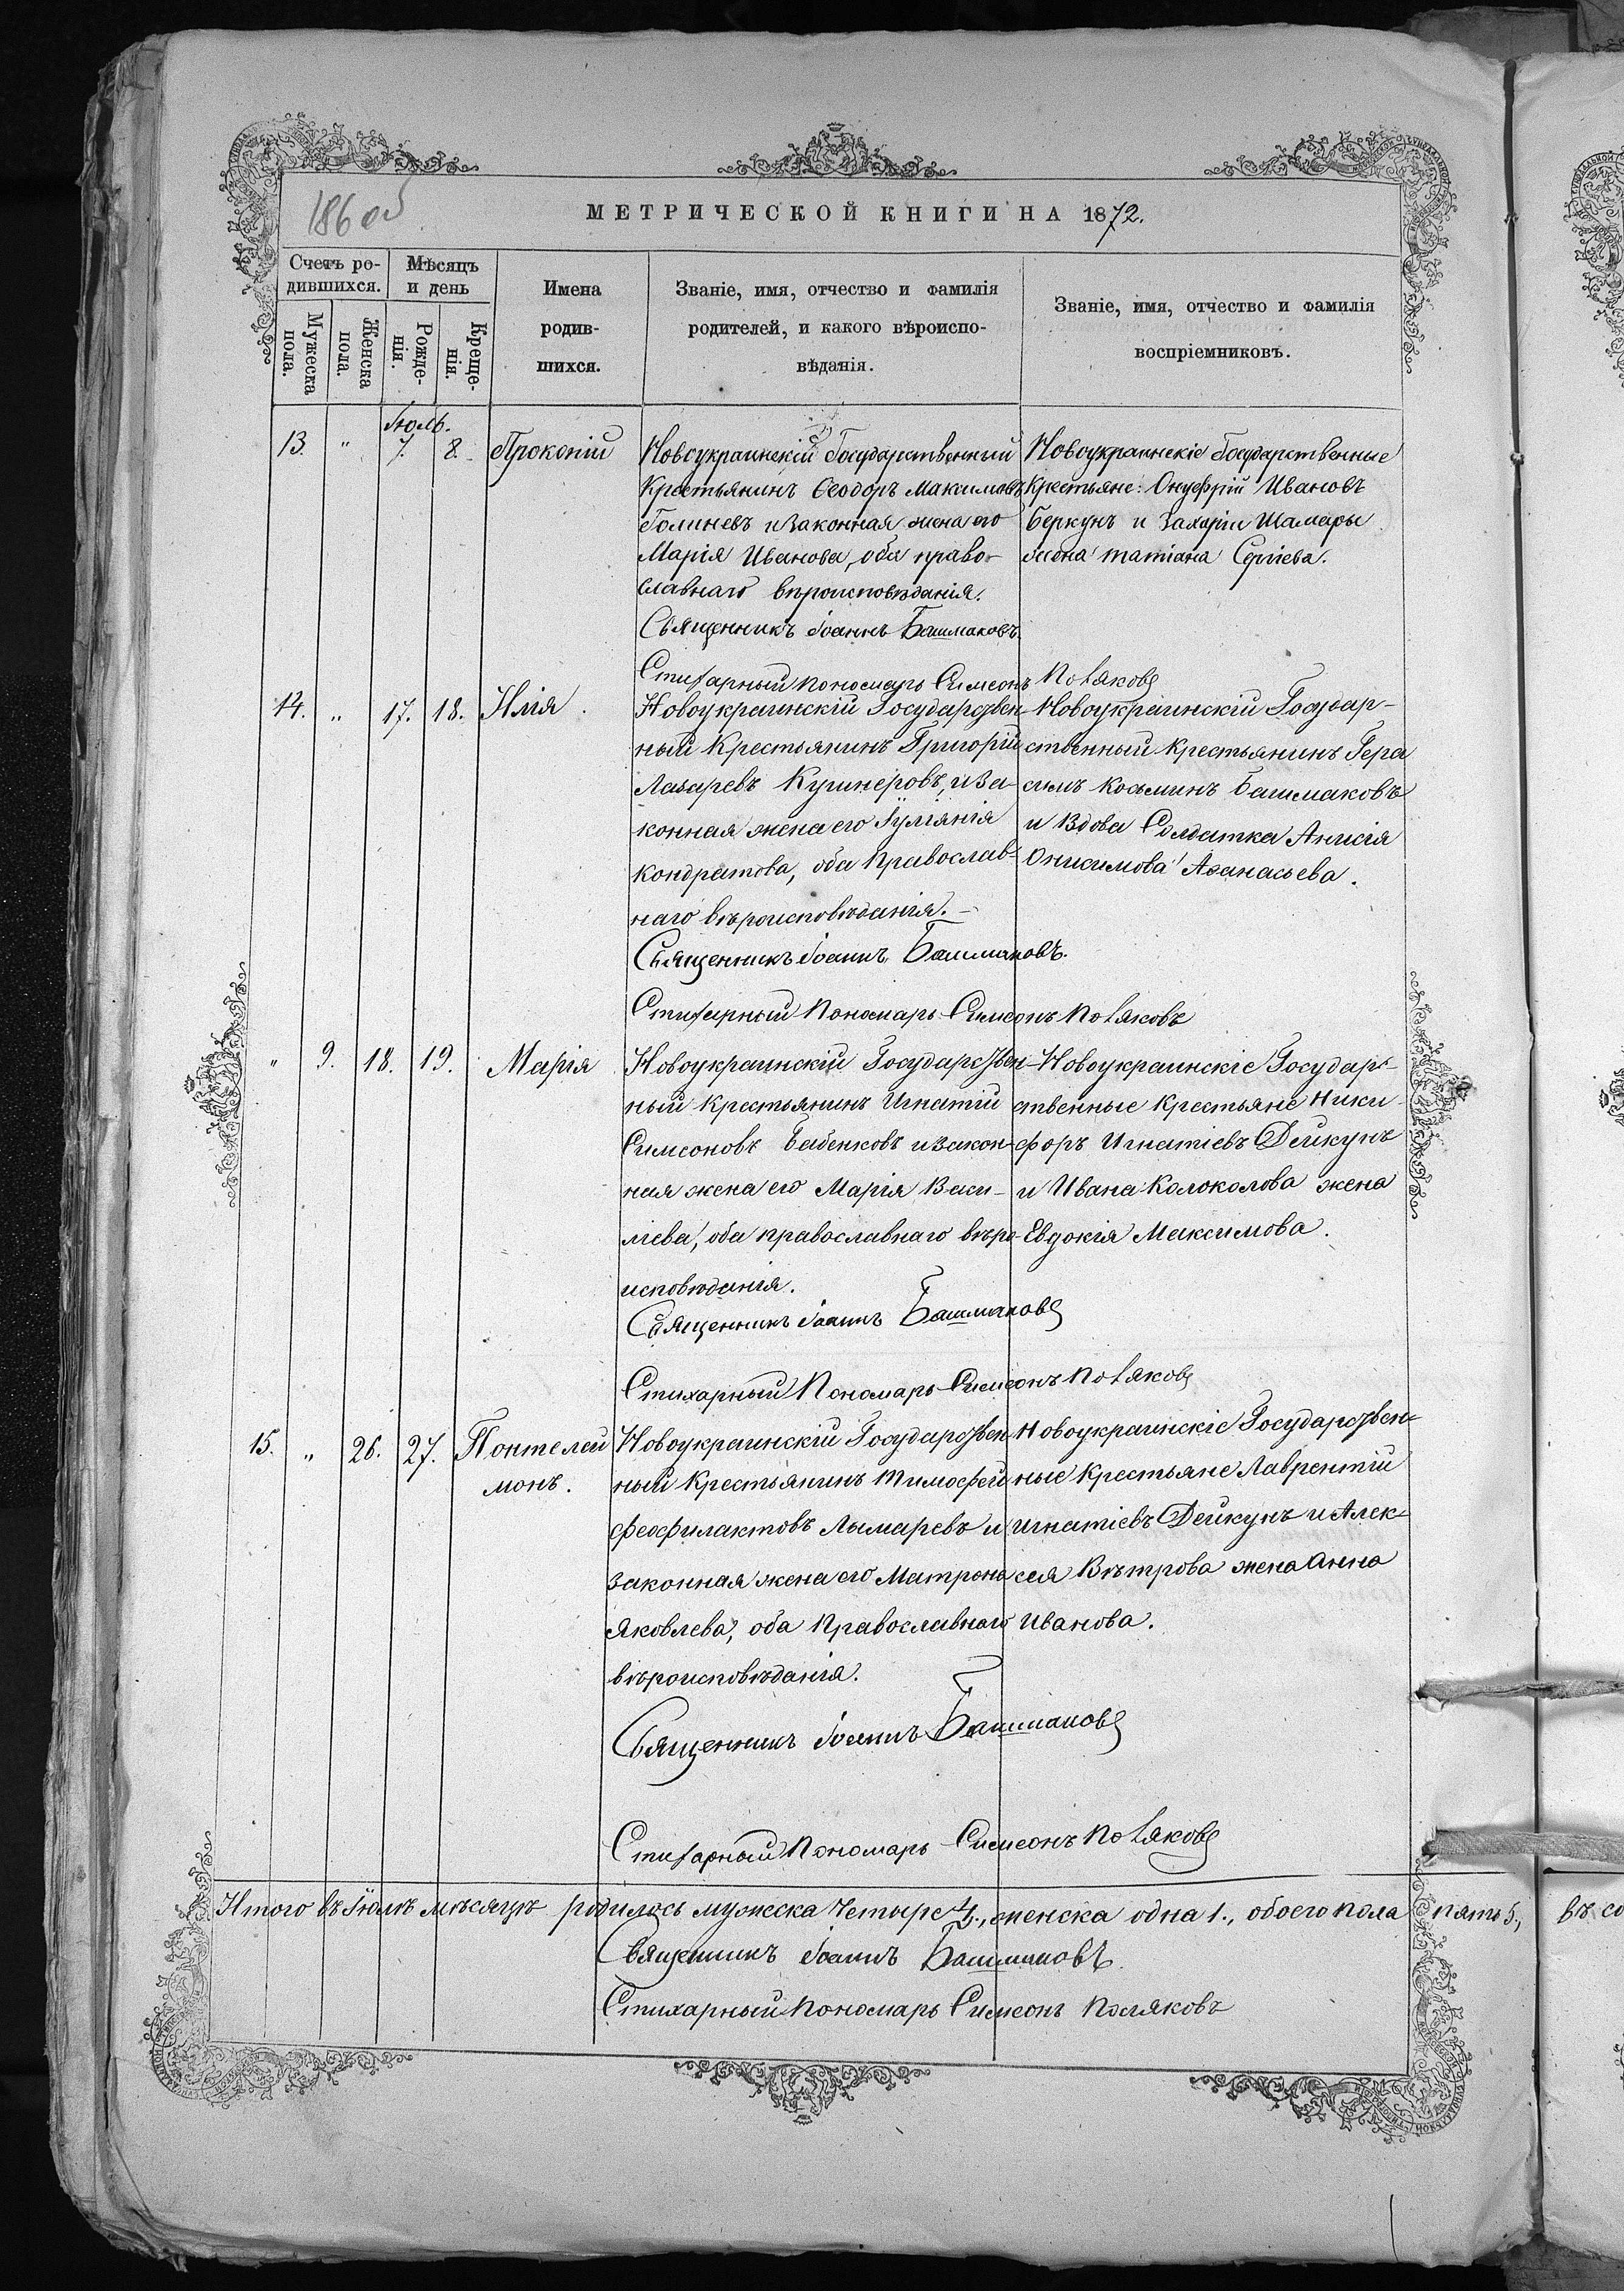 186 об
МЕТРИЧЕСКОЙ КНИГИ НА 1872.
Счетъ ро-
дившихся.
Мѣсяцъ
и день
Мужеска
пола.
Женска
пола.
Рожде-
нія.
Креще-
нія.
Имена
родив-
шихся.
Званіе, имя, отчество и фамилія
родителей, и какого вѣроиспо-
вѣданія.
Званіе, имя, отчество и фамилія
воспріемниковъ.
Іюль.
13. " 7. 8. Прокопій
Новоукраинскій Государственный
Крестьянинъ Ѳеодоръ Максимовъ
Голиневъ и Законная жена его
Марія Иванова, оба право-
славнаго вѣроисповѣданія.
Священникъ Іоаннъ Башмаковъ.
Стихарный пономарь Симеонъ Поляковъ
Новоукраинскіе Государственные
Крестьяне: Онуфрій Ивановъ
Беркунъ и Захаріи Шамары
жена татіана Сергіева.
14. " 17. 18. Илія.
Новоукраинскій Государствен-
ный Крестьянинъ Григорій
Лазаревъ Кушнеровъ, и За-
конная жена его Іуліянія
кондратова, оба Православ-
наго вѣроисповѣданія.-
Священникъ Іоаннъ Башмаковъ.
Стихарный Пономарь Симеонъ Поляковъ
Новоукраинскій Государ-
ственный крестьянинъ Гера
симъ Косьминъ Башмаковъ
и Вдова Солдатка Анисія
Онисимова Аѳанасьева.
" 9. 18. 19. Марія
Новоукраинскій Государствен-
ный крестьянинъ Игнатій
Симеоновъ Бабенковъ и закон-
ная жена его Марія Васи-
ліева, оба православнаго вѣро-
исповѣданія.
Священникъ Іоаннъ Башмаковъ
Стихарный Пономарь Симеонъ Поляковъ
Новоукраинскіе Государ-
ственные крестьяне Ники-
форъ Игнатіевъ Дейкунъ
и Ивана Колоколова жена
Евдокія Максимова.
15. " 26. 27. Понтелей
монъ.
Новоукраинскій Государствен
ный Крестьянинъ Тимофей
феофилактовъ Лымаревъ и
законная жена его Матрона
Яковлева, оба Православнаго
вѣроисповѣданія.
Священникъ Іоаннъ Башмаковъ
Стихарный Пономарь Симеонъ Поляковъ
Новоукраинскіе Государствен-
ные Крестьяне Лаврентій
игнатіевъ Дейкунъ и Алек-
сея Вѣтрова жена Анна
Иванова.
Итого въ Іюлѣ мѣсяцѣ родилось мужеска Четыре 4., женска одна 1., обоего пола пять 5.,
Священникъ Іоаннъ Башмаковъ.
Стихарный Пономарь Симеонъ Поляковъ
въ со